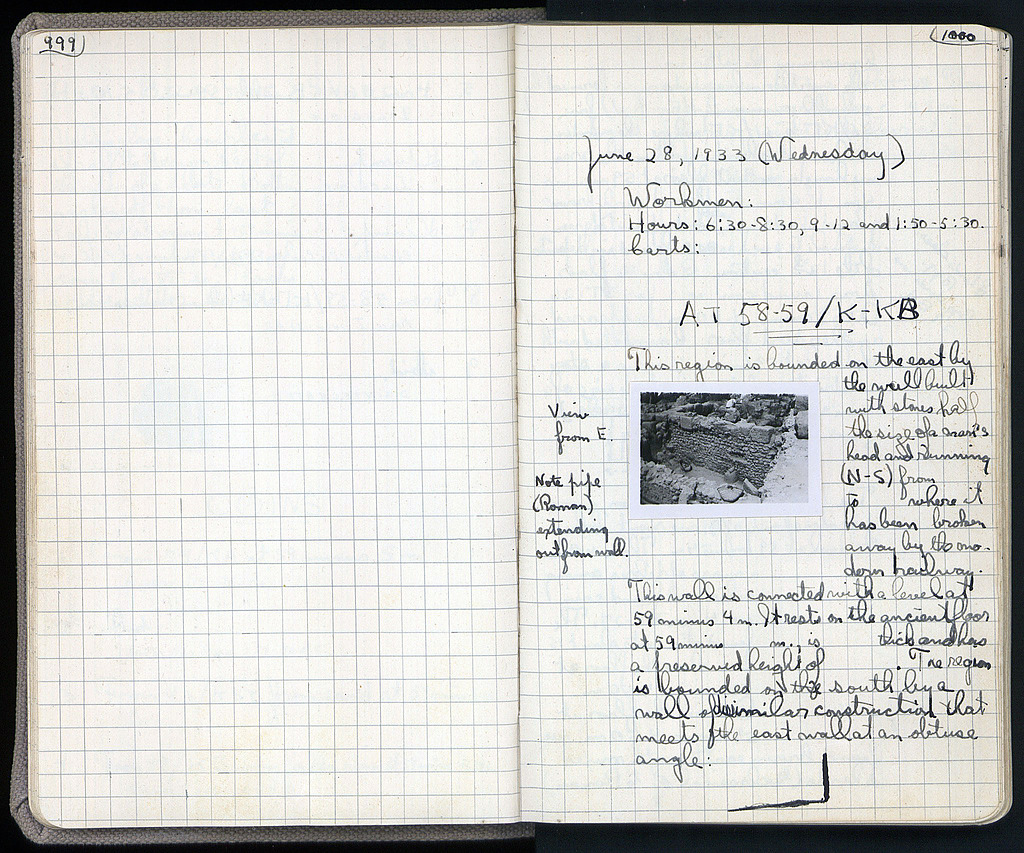 999
1000
June 28, 1933 (Wednesday)
Workmen:
Hours: 6:30-8:30, 9-12 and 1:50-5:30.
Carts:
AT 58-59/K-KB
This region is bounded on the east by
the wall built
with stones half
the size of a man's
head and running
(N-S) from
to where it
has been broken
away by the mo-
dern railway.
View
from E.
Note pipe
(Roman)
extending
out from wall.
This wall is connected with a level at
59 minus 4 m. It rests on the ancient floor
at 59 minus m., is thick and has
a preserved height of . The region
is bounded on the south by a
wall of similar construction that
meets the east wall at an obtuse
angle: